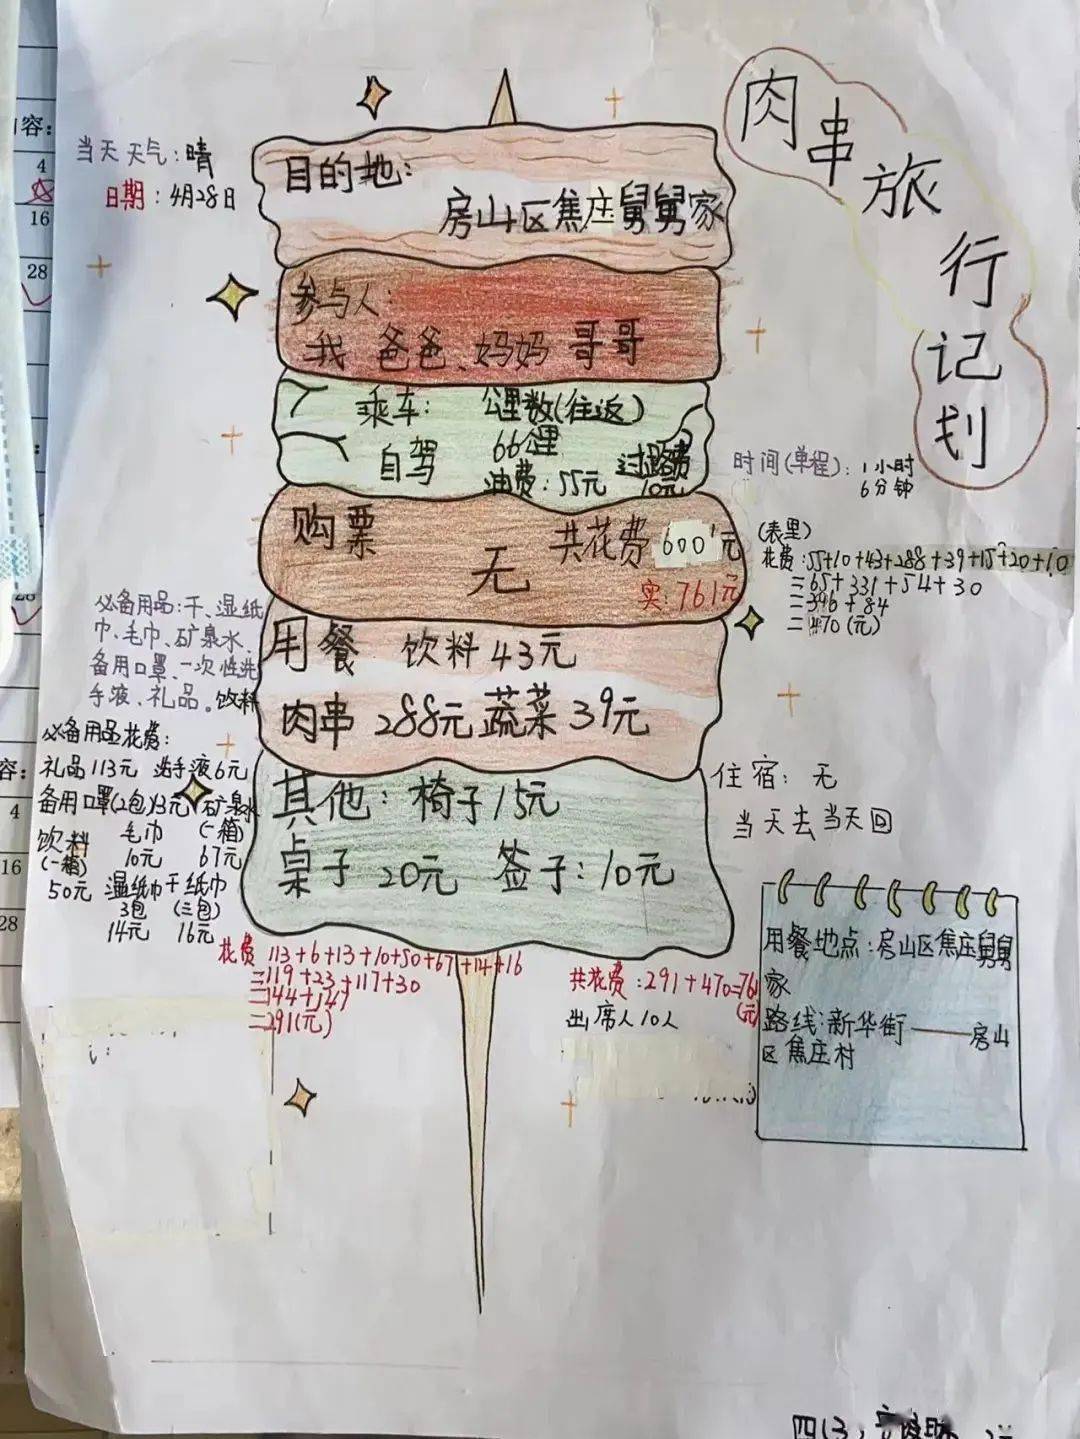 肉串旅行记划
当天天气：晴
日期：4月28日
目的地：
房山区焦庄舅舅家
参与人：
我 爸爸、妈妈 哥哥
乘车： 公里数(往返)
自驾 66公里
油费：55元
过路费
10元
时间(单程)：1小时
6分钟
购票 共花费600元
无
实：761元
(表里)
花费：55+10+43+288+39+15+20+10
=65+331+54+30
=396+84
=470(元)
必备用品：干、湿纸
巾、毛巾、矿泉水、
备用口罩、一次性洗
手液、礼品。饮料
用餐 饮料43元
肉串 288元 蔬菜 39元
必备用品花费：
礼品113元 洗手液6元
备用口罩(2包)13元 矿泉水
(一箱)
67元
毛巾
10元
饮料
(一箱)
50元
湿纸巾
3包
14元
干纸巾
(三包)
16元
其他：椅子15元
桌子 20元 签子：10元
住宿：无
当天去当天回
花费 113+6+13+10+50+67+14+16
=119+23+117+30
=144+147
=291(元)
共花费：291+470=761
(元)
出席人10人
用餐地点：房山区焦庄舅舅
家
路线：新华街——房山
区焦庄村
内容：
4
16
28
容：
4
16
28
四(3)